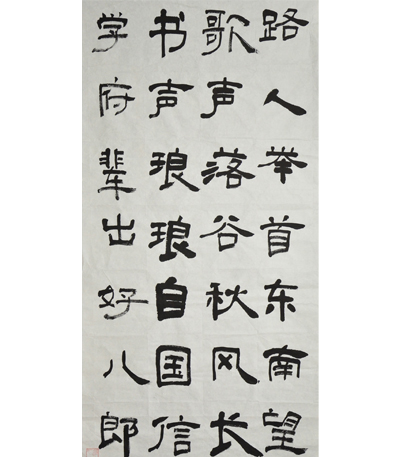 路人举首东南望
歌声落谷秋风长
书声琅琅自国信
学府辈出好八郎